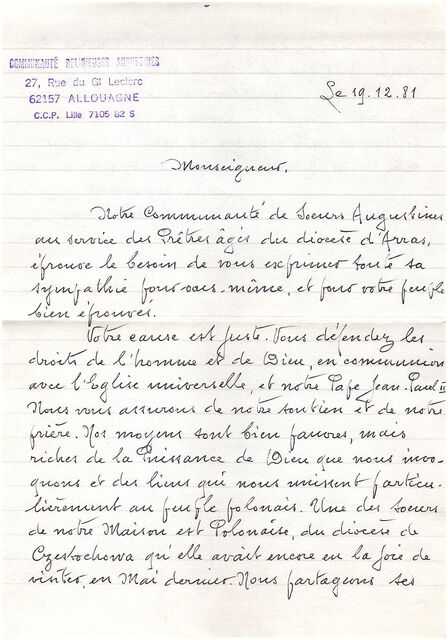 COMMUNAUTÉ RELIGIEUSES AUGUSTINES
27, Rue du Gl Leclerc
62157 ALLOUAGNE
C.C.P. Lille 7105 82 S
Le 19.12.81
Monseigneur,
Notre Communauté de Soeurs Augustines
au service des Prêtres âgés du diocèse d'Arras,
éprouve le besoin de vous exprimer toute sa
sympathie pour vous-même, et pour votre peuple
bien éprouvés.
Votre cause est juste. Vous défendez les
droits de l'homme et de Dieu, en communion
avec l'Eglise universelle, et notre Pape Jean-Paul II
Nous vous assurons de notre soutien et de notre
prière. Nos moyens sont bien pauvres, mais
riches de la Puissance de Dieu que nous invo-
quons et des liens qui nous unissent particu-
lièrement au peuple polonais. Une des soeurs
de notre Maison est Polonaise, du diocèse de
Czestochowa qu'elle avait encore eu la joie de
visiter, en Mai dernier. Nous partageons ses